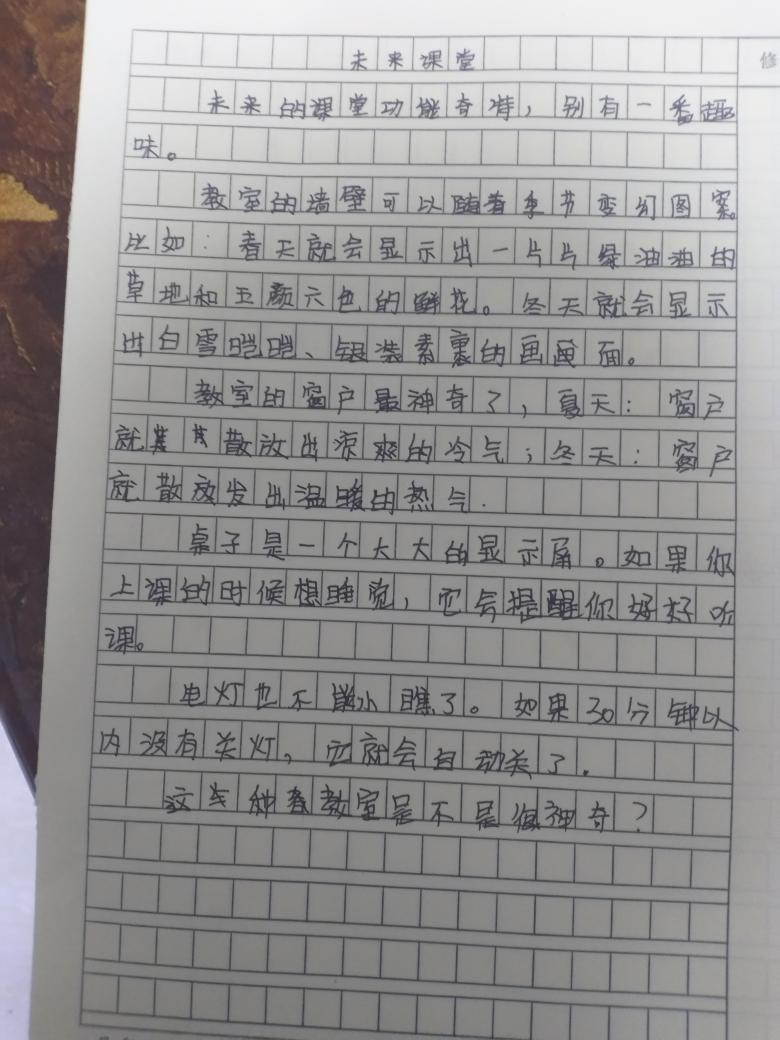 未来课堂
未来的课堂功能奇特，别有一番趣
味。
教室的墙壁可以随着季节变幻图案。
比如：春天就会显示出一片片绿油油的
草地和五颜六色的鲜花。冬天就会显示
出白雪皑皑、银装素裹的画面。
教室的窗户最神奇了，夏天：窗户
就散放出凉爽的冷气；冬天：窗户
就散放发出温暖的热气.
桌子是一个大大的显示屏。如果你
上课的时候想睡觉，它会提醒你好好听
课。
电灯也不能小瞧了。如果30分钟以
内没有关灯，它就会自动关了.
这种教室是不是很神奇？
修